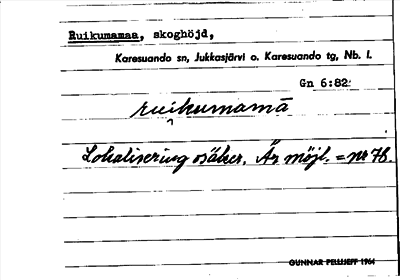 Ruikumamaa, skoghöjd,
Karesuando sn, Jukkasjärvi o. Karesuando tg, Nb. l.
Gn 6:82
ruikumamā
Lokalisering osäker. Är möjl. = nr 78.
GUNNAR PELLIJEFF 1964